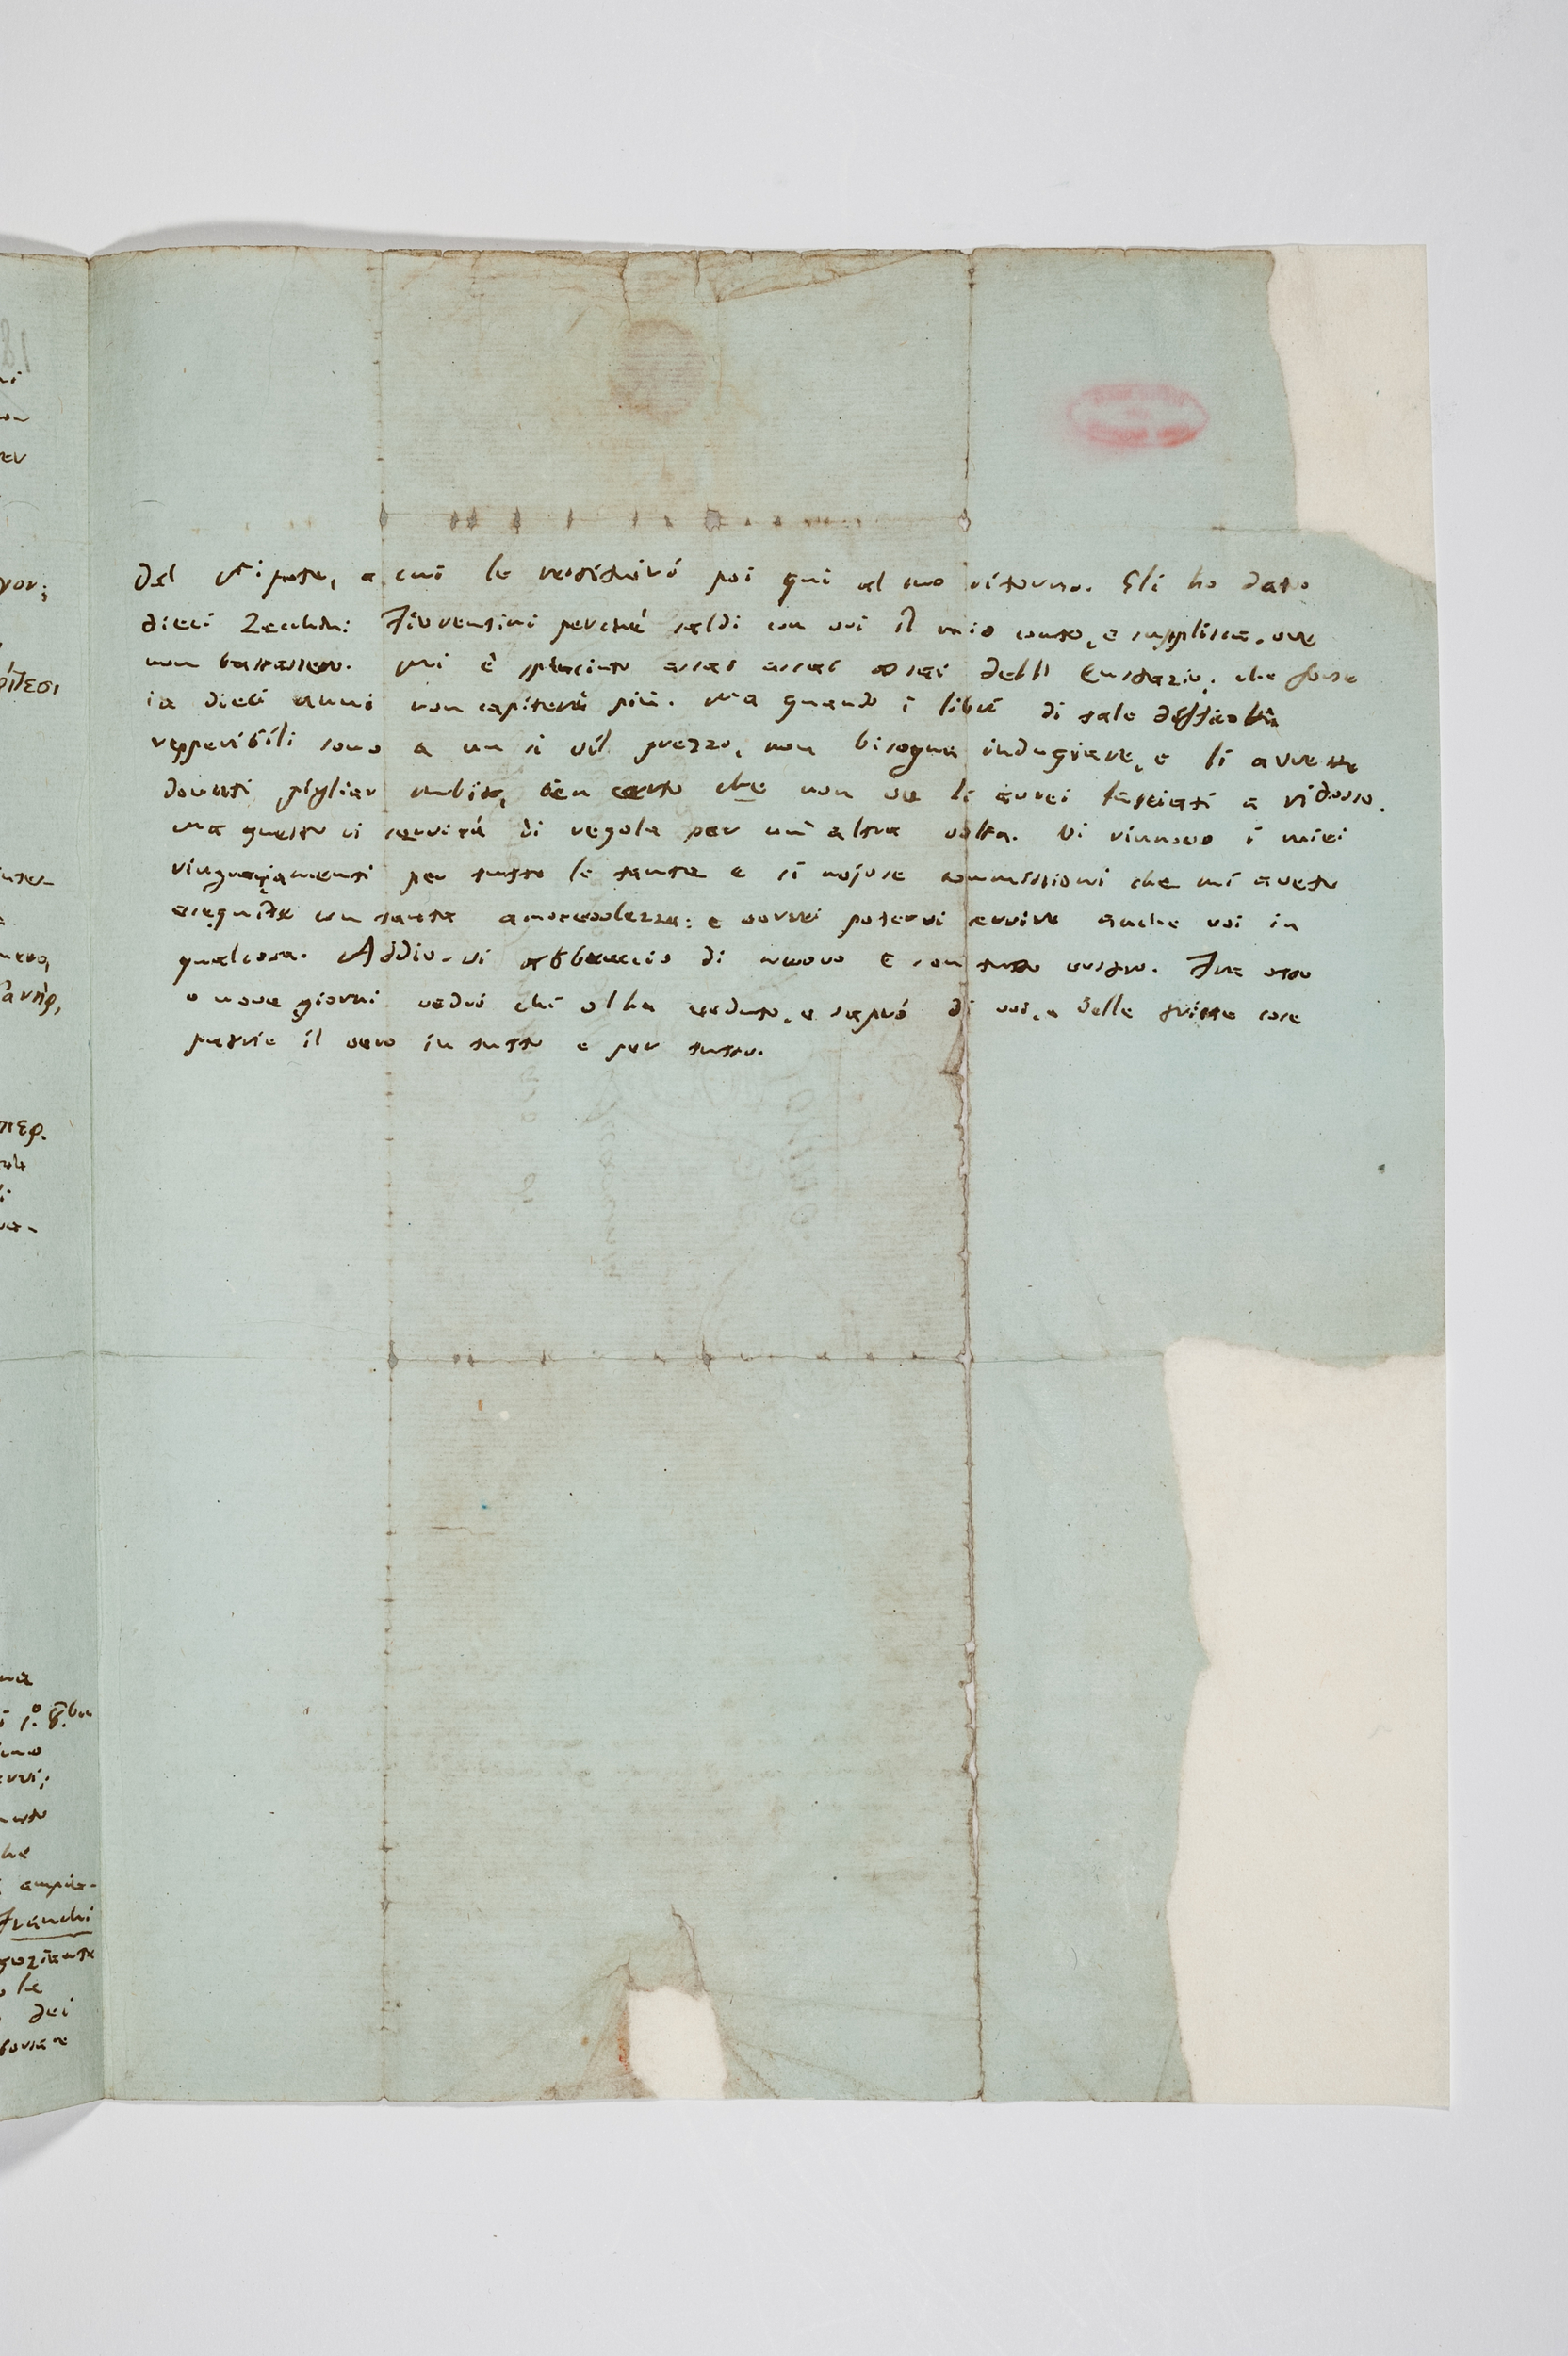 del Nipote, a cui le restituirò poi qui al suo ritorno. Gli ho dato
dieci Zecchini Fiorentini perché saldi con voi il mio conto, e supplisca, ove
non bastassero. Mi è spiaciuto assai assai assai dell' Eustazio; che forse
in dieci anni non capiterà più. Ma quando i libri di tale difficoltà
repperibili sono a un sì vil prezzo, non bisogna indugiare, e li avreste
dovuti pigliar subito, ben certo che non ve li avrei lasciati a ridosso.
Ma questo vi servirà di regola per un' altra volta. Vi rinnovo i miei
ringraziamenti per tutte le tante e sì nojose commissioni che mi avete
eseguite con tanta amorevolezza: e vorrei potervi servire anche voi in
qualcosa. Addio. vi abbraccio di nuovo e son tutto vostro. Fra otto
o nove giorni vedrò chi vi ha veduto, e saprò di voi, e delle triste cose
patrie il vero in tutto e per tutto.
yor;
περ.
1.º 8.bre
he
Franchi
le
dei